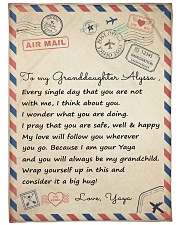 AIR MAIL
To my Granddaughter Alyssa,
Every single day that you are not
with me, I think about you.
I wonder what you are doing.
I pray that you are safe, well & happy
My love will follow you wherever
you go. Because I am your Yaya
and you will always be my grandchild.
Wrap yourself up in this and
consider it a big hug!
Love, Yaya